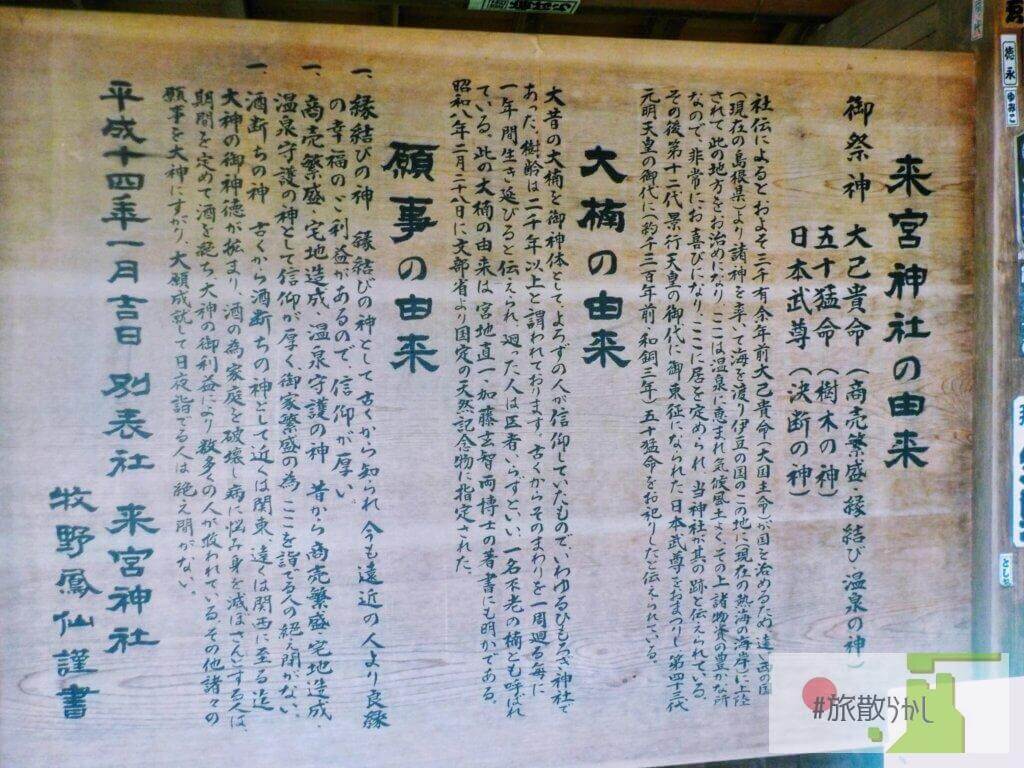 来宮神社の由来
御祭神　大己貴命（商売繁盛・縁結び・温泉の神）
五十猛命（樹木の神）
日本武尊（決断の神）
社伝によるとおよそ三千有余年前大己貴命（大国主命）が国を治めるため遠い西の国
（現在の島根県）より諸神を率いて海を渡り伊豆の国のこの地に（現在の熱海の海岸に）上陸
されて此の地方をお治めになり、ここは温泉に恵まれ気候風土よく、その上諸物資の豊かな所
なので、非常にお喜びになり、ここに居を定められ、当神社が其の跡と伝えられている。
その後第十二代景行天皇の御代に御東征になられた日本武尊をおまつりし第四十三代
元明天皇の御代に（約千三百年前・和銅三年）五十猛命をお祀りしたと伝えられている。
大楠の由来
大昔の大楠を御神体として、よろずの人が信仰していたもので、いわゆるひもろぎ神社で
あった。樹齢は二千年以上と謂われております。古くからそのまわりを一周廻る毎に
一年間生き延びると伝えられ、廻った人は医者いらずといい、一名不老の楠とも呼ばれ
ている。此の大楠の由来は、宮地直一、加藤玄智両博士の著書にも明かである。
昭和八年二月二十八日に文部省より国定の天然記念物に指定された。
願事の由来
一、縁結びの神　縁結びの神として古くから知られ今も遠近の人より良縁
の幸福のご利益があるので、信仰が厚い。
一、商売繁盛・宅地造成・温泉守護の神　昔から商売繁盛・宅地造成・
温泉守護の神として信仰が厚く、御家繁盛の為ここを詣でる人の絶え間がない。
一、酒断ちの神　古くから酒断ちの神として近くは関東、遠くは関西に至る迄
大神の御神徳が拡まり、酒の為家庭を破壊し病に悩み身を滅ぼさんとする人は、
期間を定めて酒を絶ち大神の御利益により数多くの人が救われている。その他諸々の
願事を大神にすがり、大願成就して日夜詣でる人は絶え間がない。
平成十四年一月吉日　別表社　来宮神社
牧野鳳仙謹書
徳永
ゆみこ
#旅散らかし